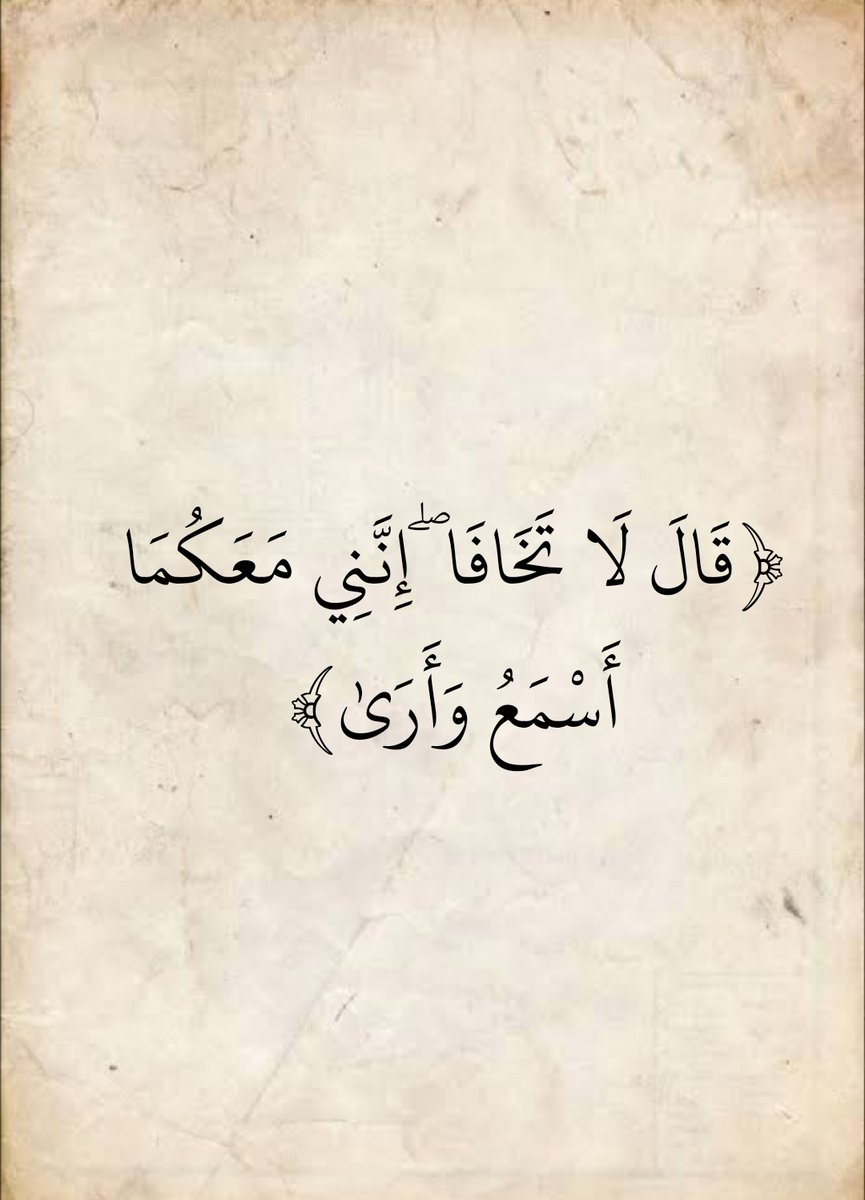 ﴿قَالَ لَا تَخَافَا ۖ إِنَّنِي مَعَكُمَا
أَسْمَعُ وَأَرَىٰ﴾